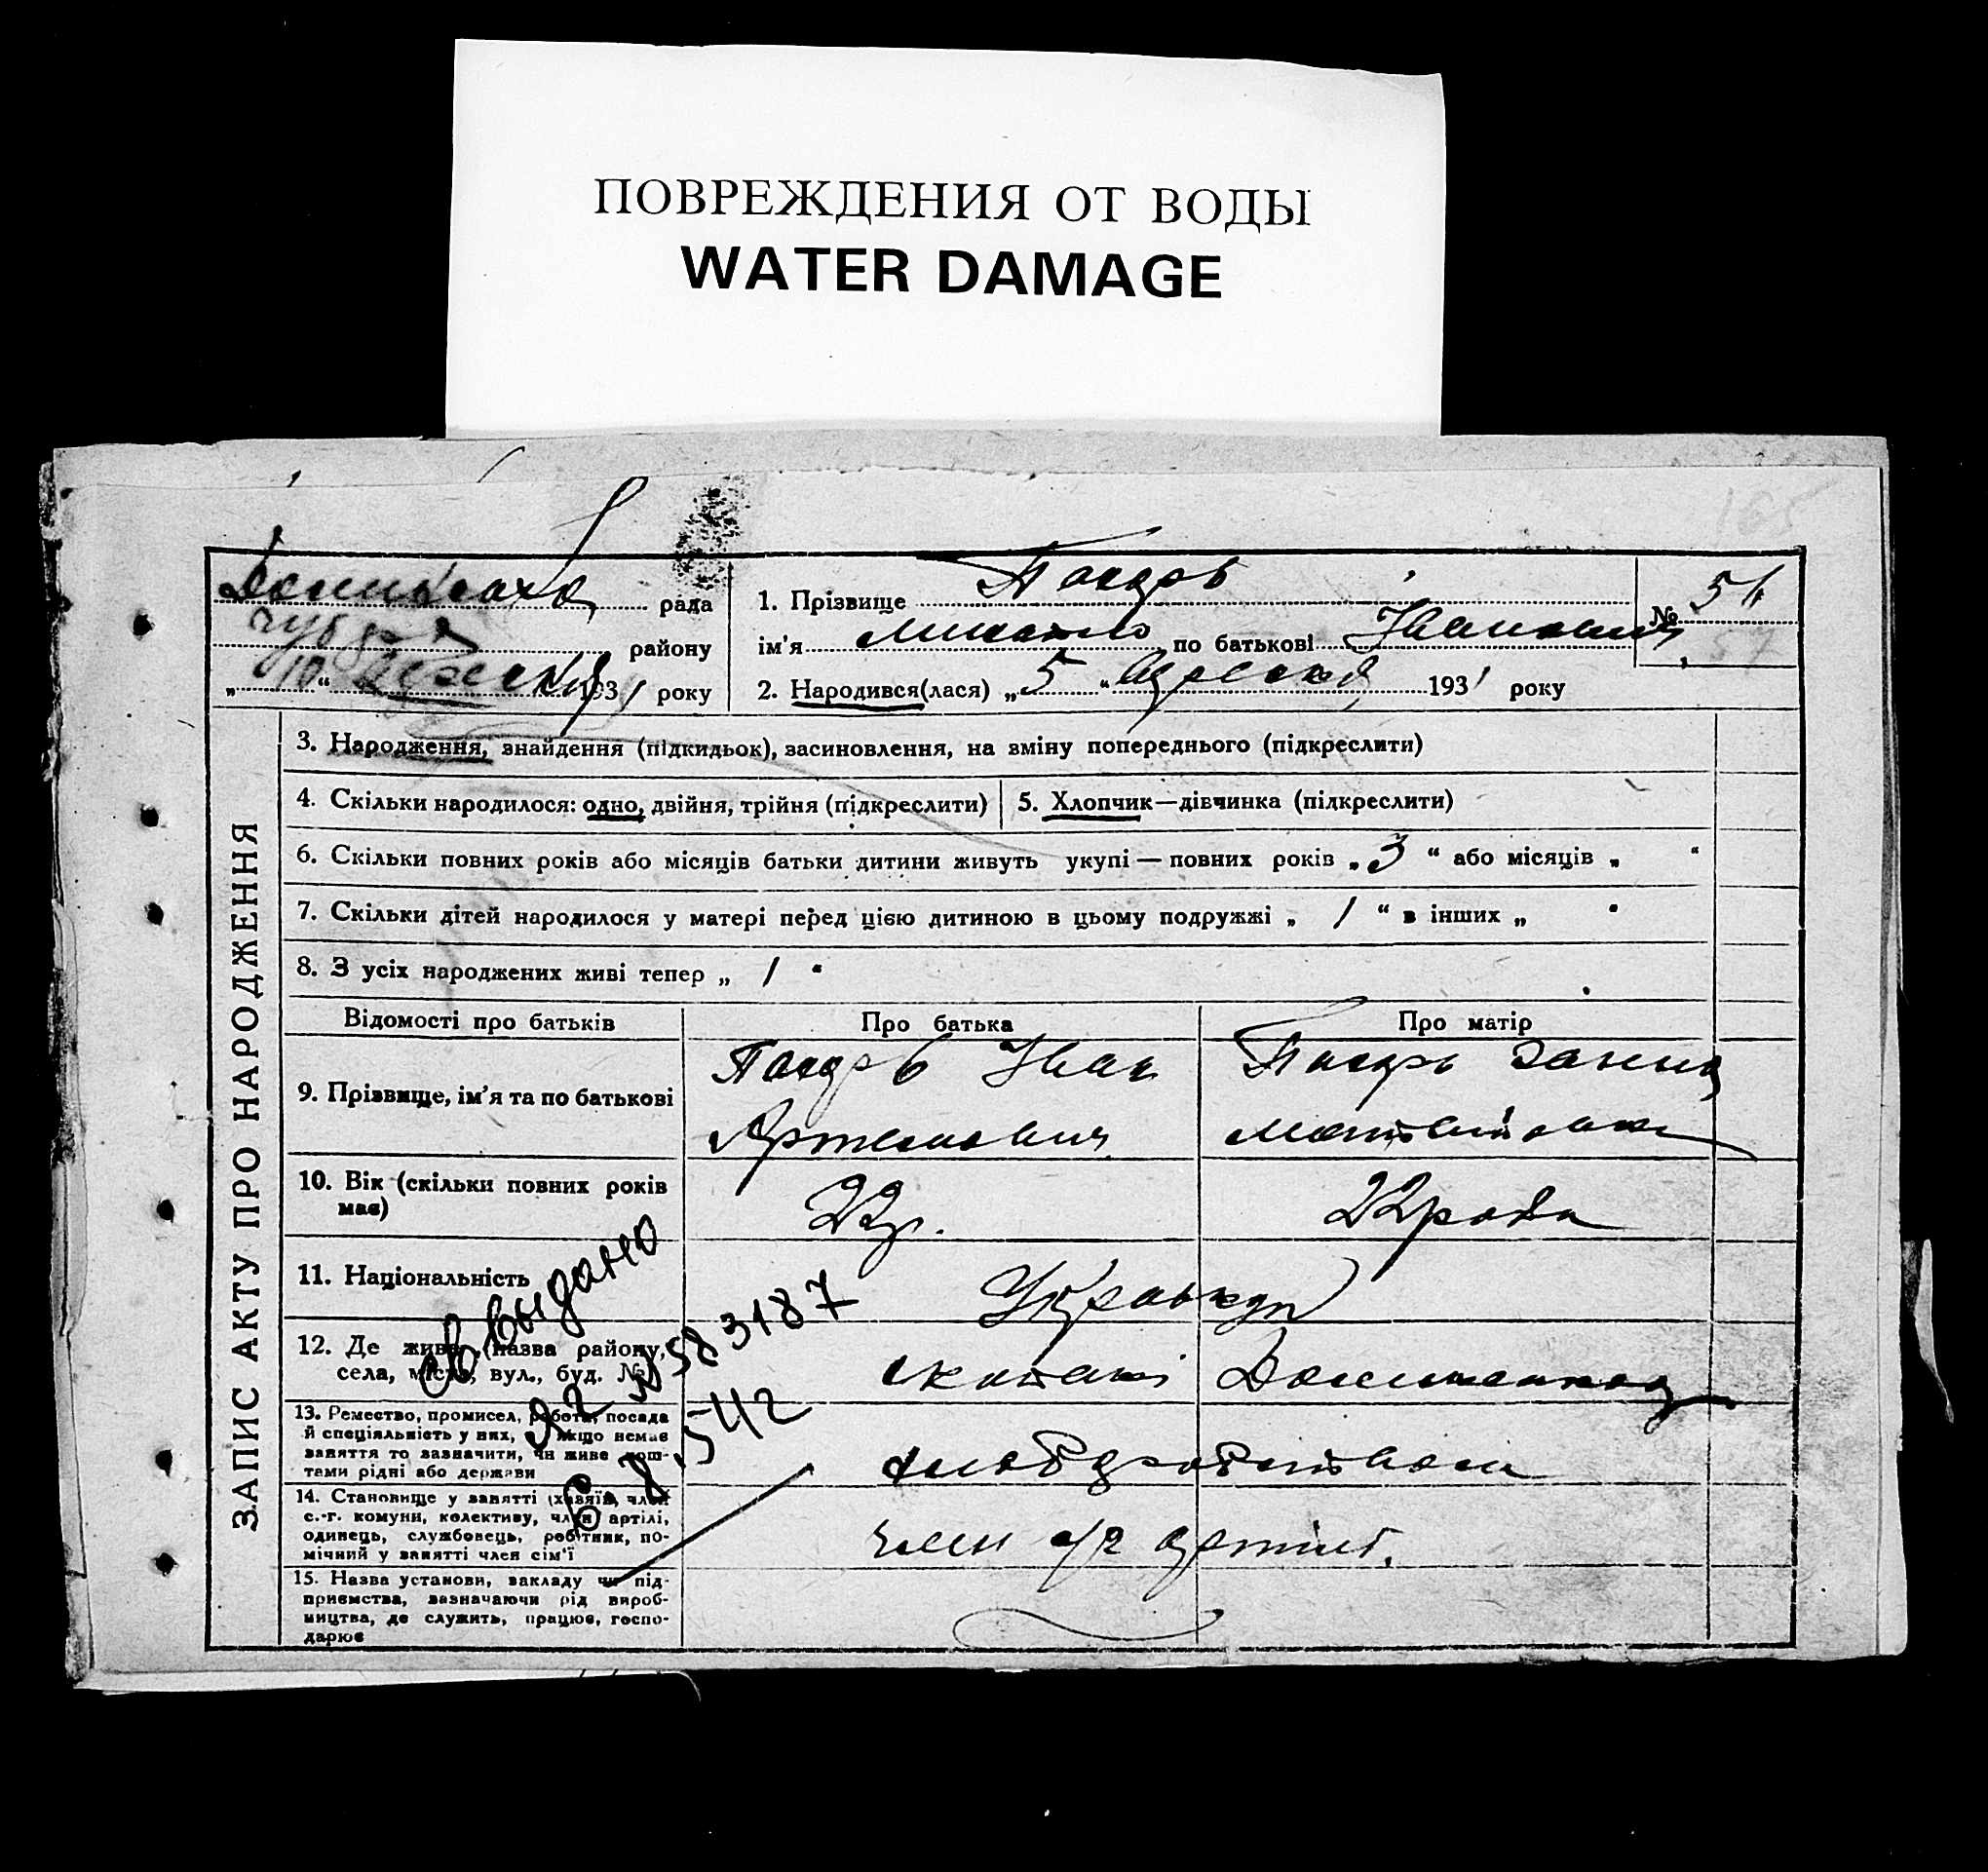 ПОВРЕЖДЕНИЯ ОТ ВОДЫ
WATER DAMAGE
165
рада
району
„10“ 1931 року
1. Прізвище
ім'я Михайло по батькові Іванович
2. Народився(лася) „5“ 1931 року
№ 54
57
ЗАПИС АКТУ ПРО НАРОДЖЕННЯ
3. Народження, знайдення (підкидьок), засиновлення, на вміну попереднього (підкреслити)
4. Скільки народилося: одно, двійня, трійня (підкреслити)
5. Хлопчик—дівчинка (підкреслити)
6. Скільки повних років або місяців батьки дитини живуть укупі — повних років „3“ або місяців „ “
7. Скільки дітей народилося у матері перед цією дитиною в цьому подружжі „ 1 “ в інших „ “
8. З усіх народжених живі тепер „ 1 “
Відомості про батьків
Про батька
Про матір
9. Прізвище, ім'я та по батькові
Іван
Артемович
Ганна
Матвіївна
10. Вік (скільки повних років має)
22р.
22 роки
11. Національність
12. Де живе (назва району, села, міста, вул., буд. №)
13. Ремество, промисел, робота, посада
й спеціяльність у них, якщо немає
заняття то зазначити, чи живе кош-
тами рідні або держави
хліборобством
14. Становище у занятті (хазяїн, член
с.-г. комуни, колективу, член артілі,
одинець, службовець, робітник, по-
мічний у занятті член сім'ї
член с/г артілі.
15. Назва установи, закладу чи під-
приємства, зазначаючи рід вироб-
ництва, де служить, працює, госпо-
дарює
св выдано
№ 583187
542